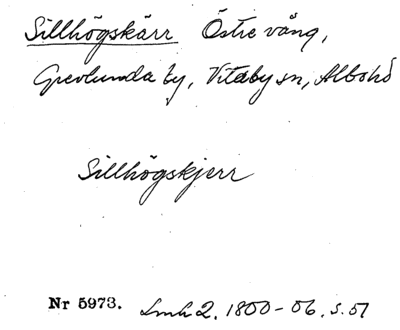 Sillhögskärr Östre vång,
Grevlunda by, Vitaby sn, Albo hd
Sillhögskjerr
Nr 5973. Lmh 2. 1800-06. s. 51